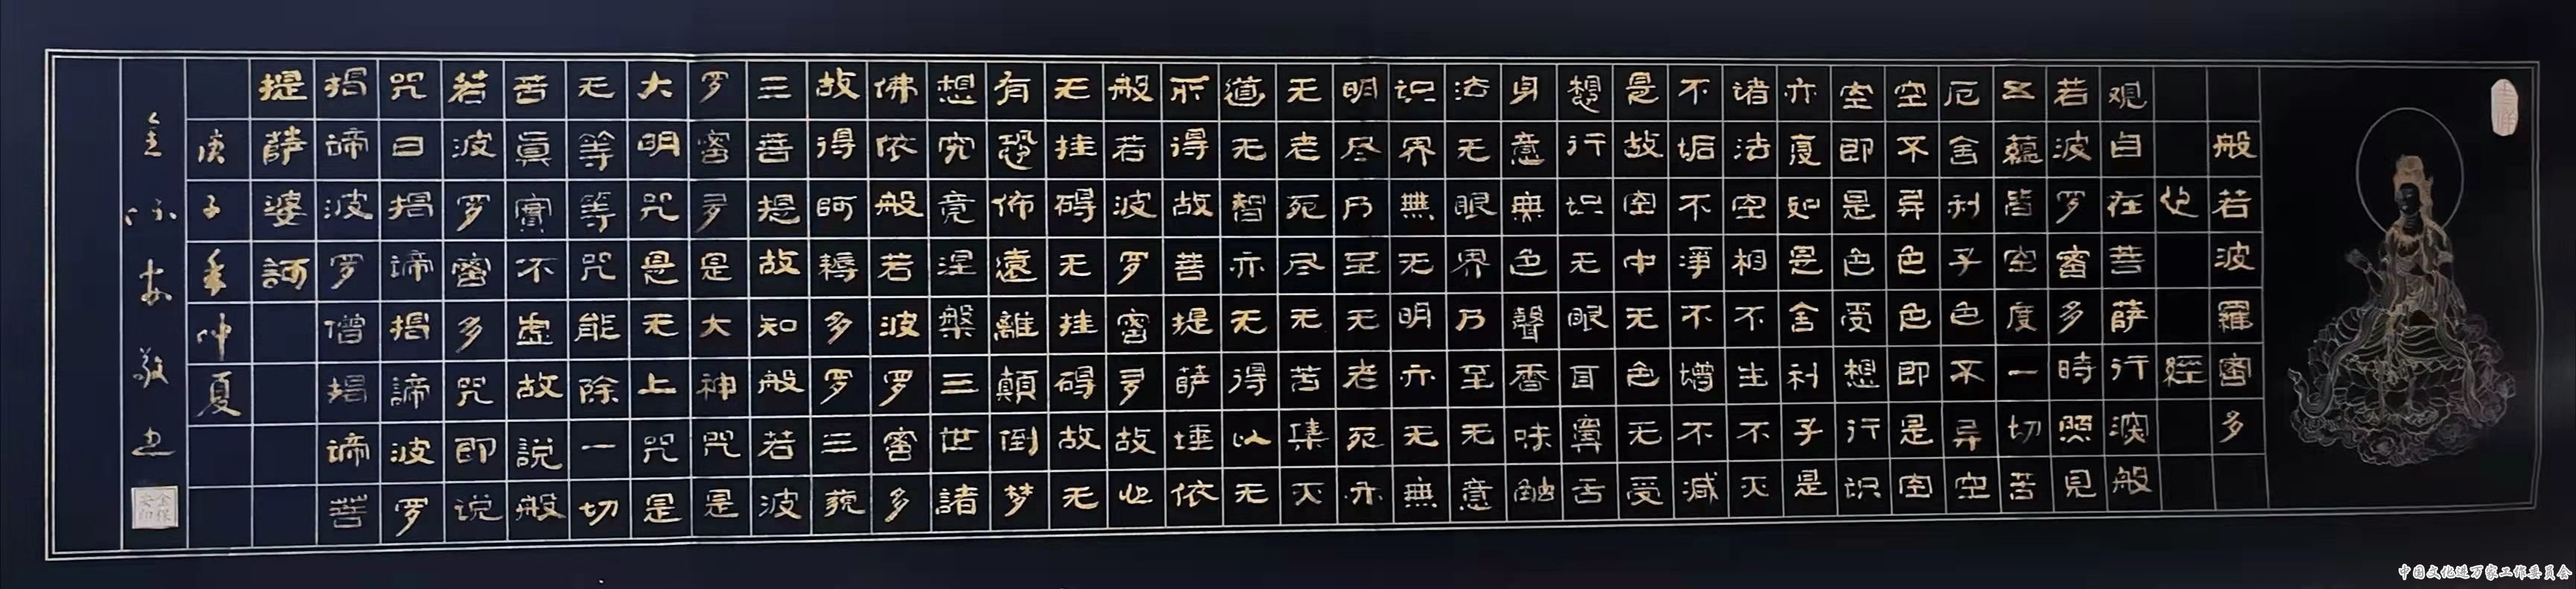 般若波羅密多
心經
观自在菩萨行深般
若波罗密多時照見
五蘊皆空度一切苦
厄舍利子色不异空
空不异色色即是空
空即是色受想行识
亦复如是舍利子是
诸法空相不生不灭
不垢不淨不增不减
是故空中无色无受
想行识无眼耳鼻舌
身意無色聲香味触
法无眼界乃至无意
识界無无明亦无無
明尽乃至无老死亦
无老死尽无苦集灭
道无智亦无得以无
所得故菩提萨埵依
般若波罗密多故心
无挂碍无挂碍故无
有恐怖遠離顛倒梦
想究竟涅槃三世諸
佛依般若波罗密多
故得阿耨多罗三藐
三菩提故知般若波
罗密多是大神咒是
大明咒是无上咒是
无等等咒能除一切
苦真實不虚故說般
若波罗密多咒即说
咒曰揭諦揭諦波罗
揭諦波罗僧揭諦菩
提薩婆訶
庚子年仲夏
金保安敬书
金保安印
中国文化进万家工作委员会